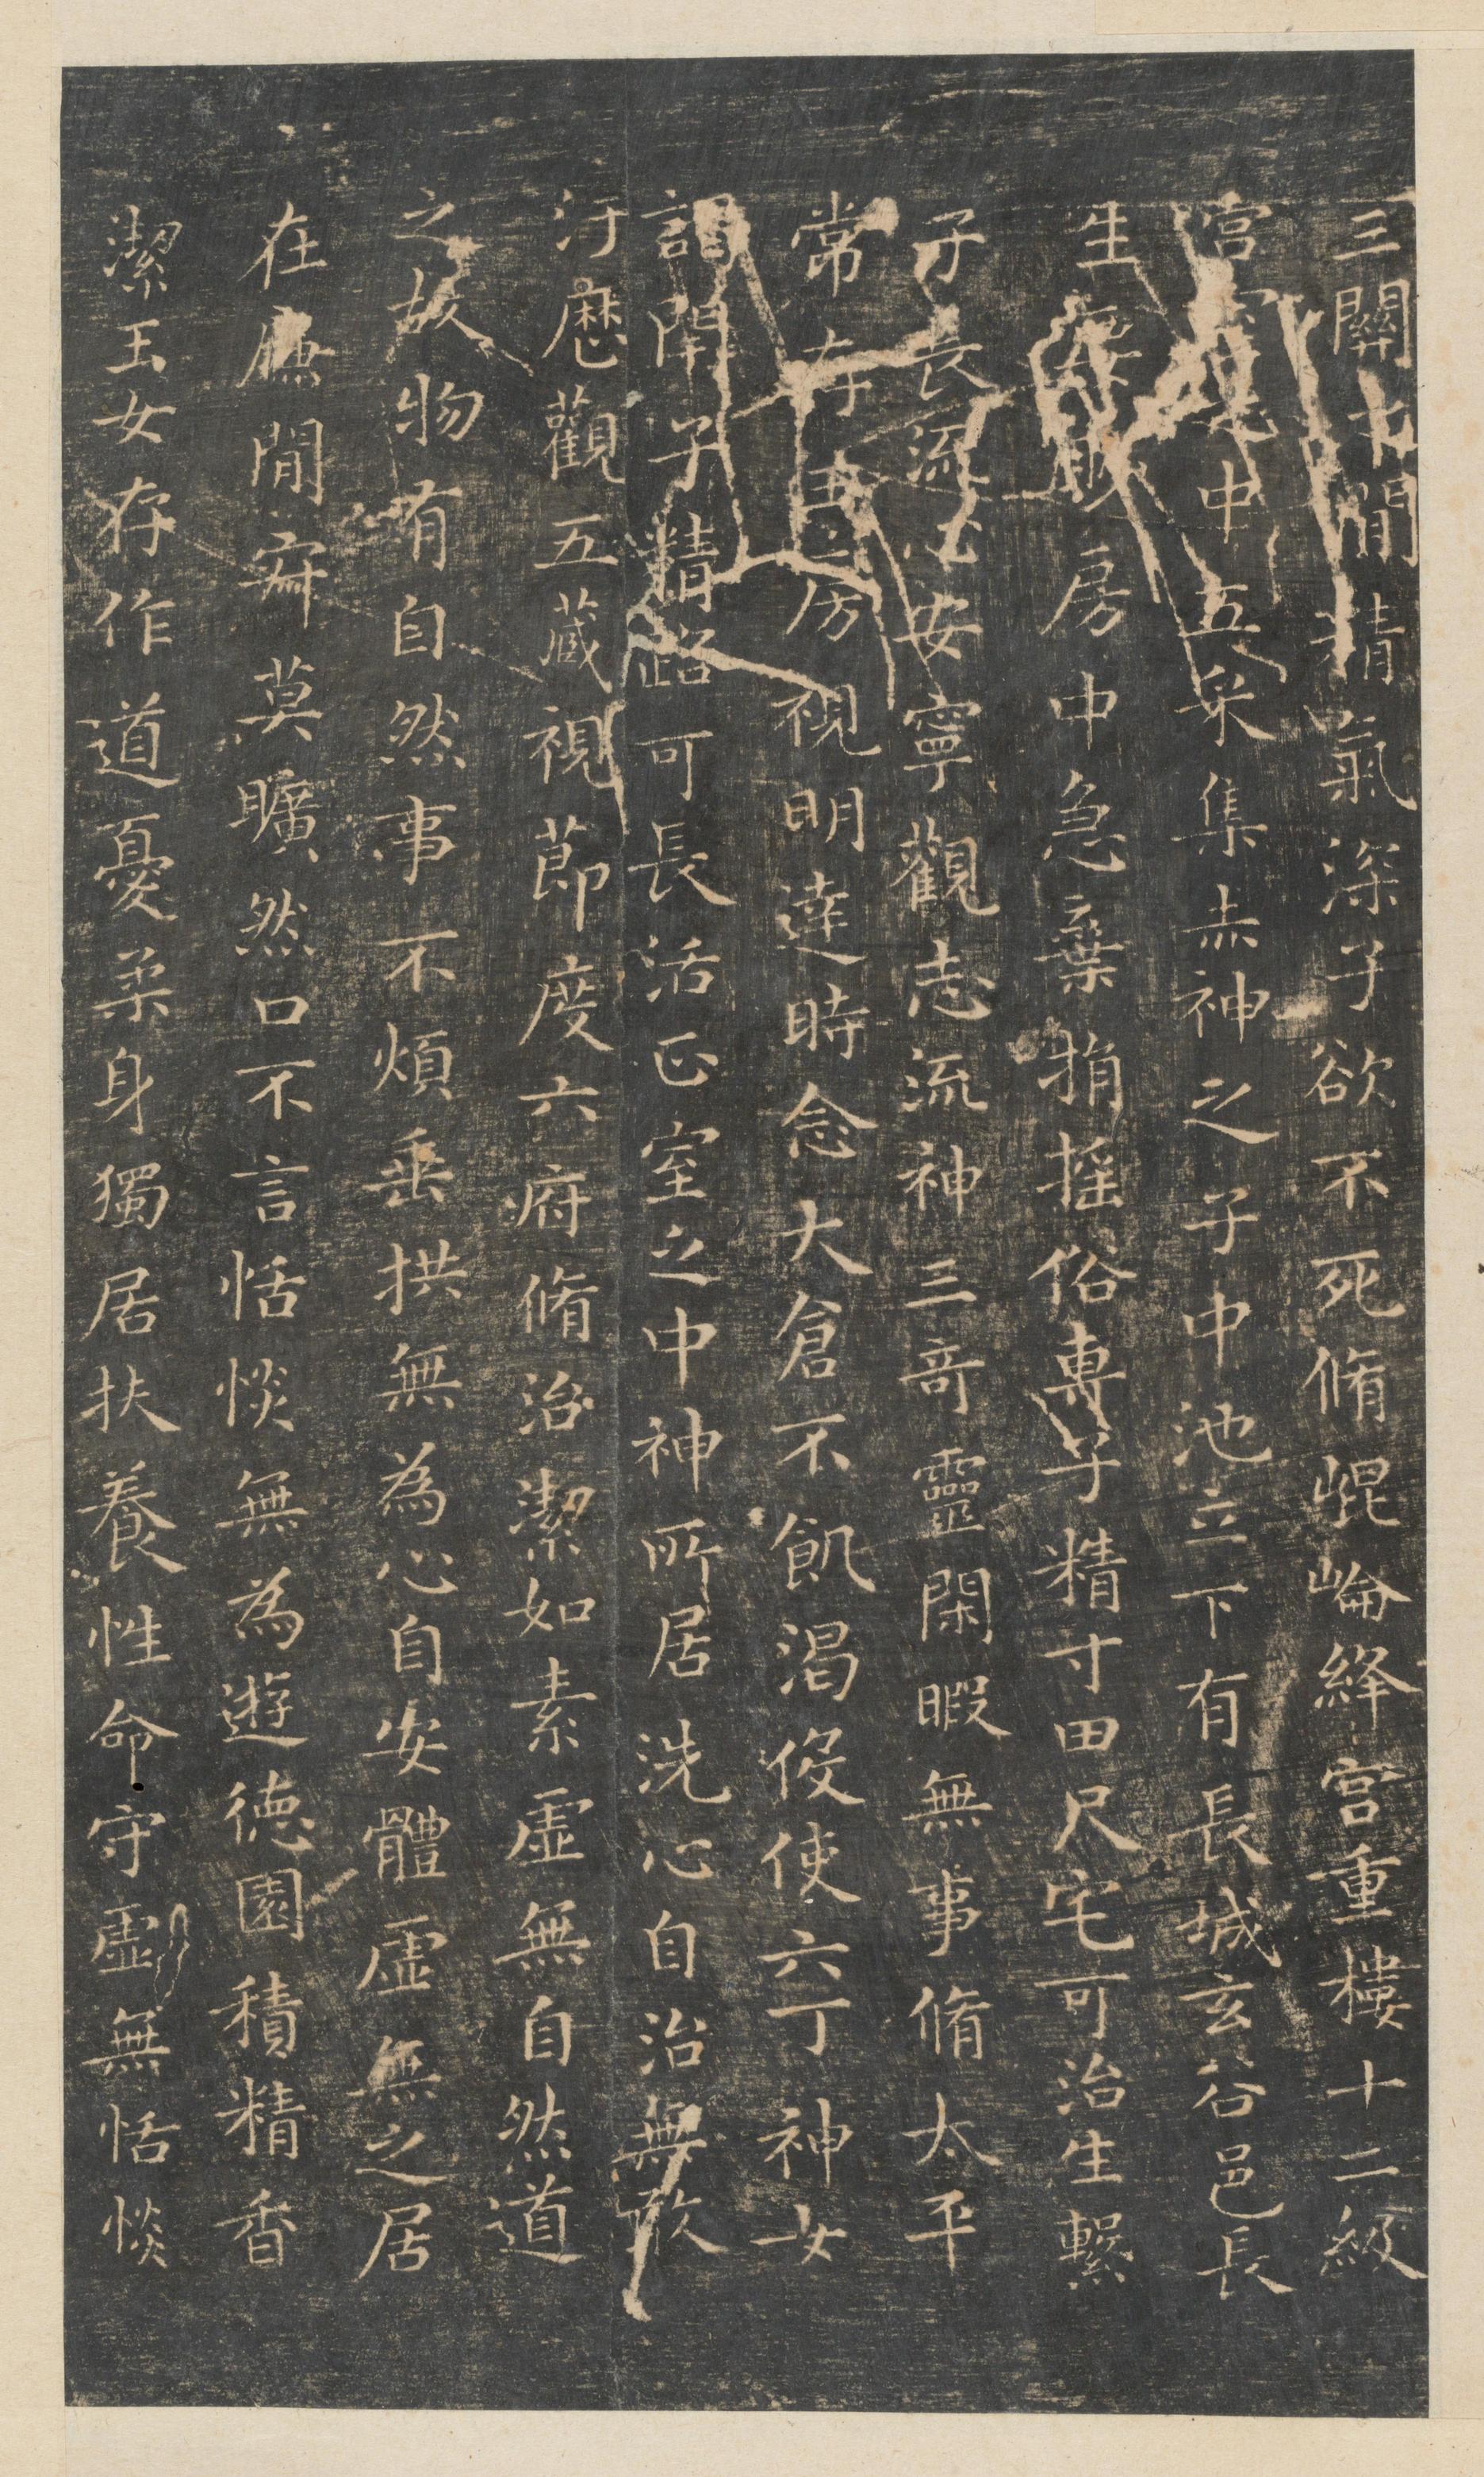 三關之間精氣深子欲不死脩崐崘絳宮重樓十二級
宮室之中五采集赤神之子中池立下有長城玄谷邑長
生要眇房中急棄捐搖俗專子精寸田尺宅可治生繫
子長流心安寧觀志流神三奇靈閑暇無事脩太平
常存玉房視明達時念大倉不飢渴役使六丁神女
謁閉子精路可長活正室之中神所居洗心自治無敢
汙歷觀五藏視節度六府脩治潔如素虛無自然道
之故物有自然事不煩垂拱無為心自安體虛無之居
在廉間寂莫曠然口不言恬惔無為遊德園積精香
潔玉女存作道憂柔身獨居扶養性命守虛無恬惔